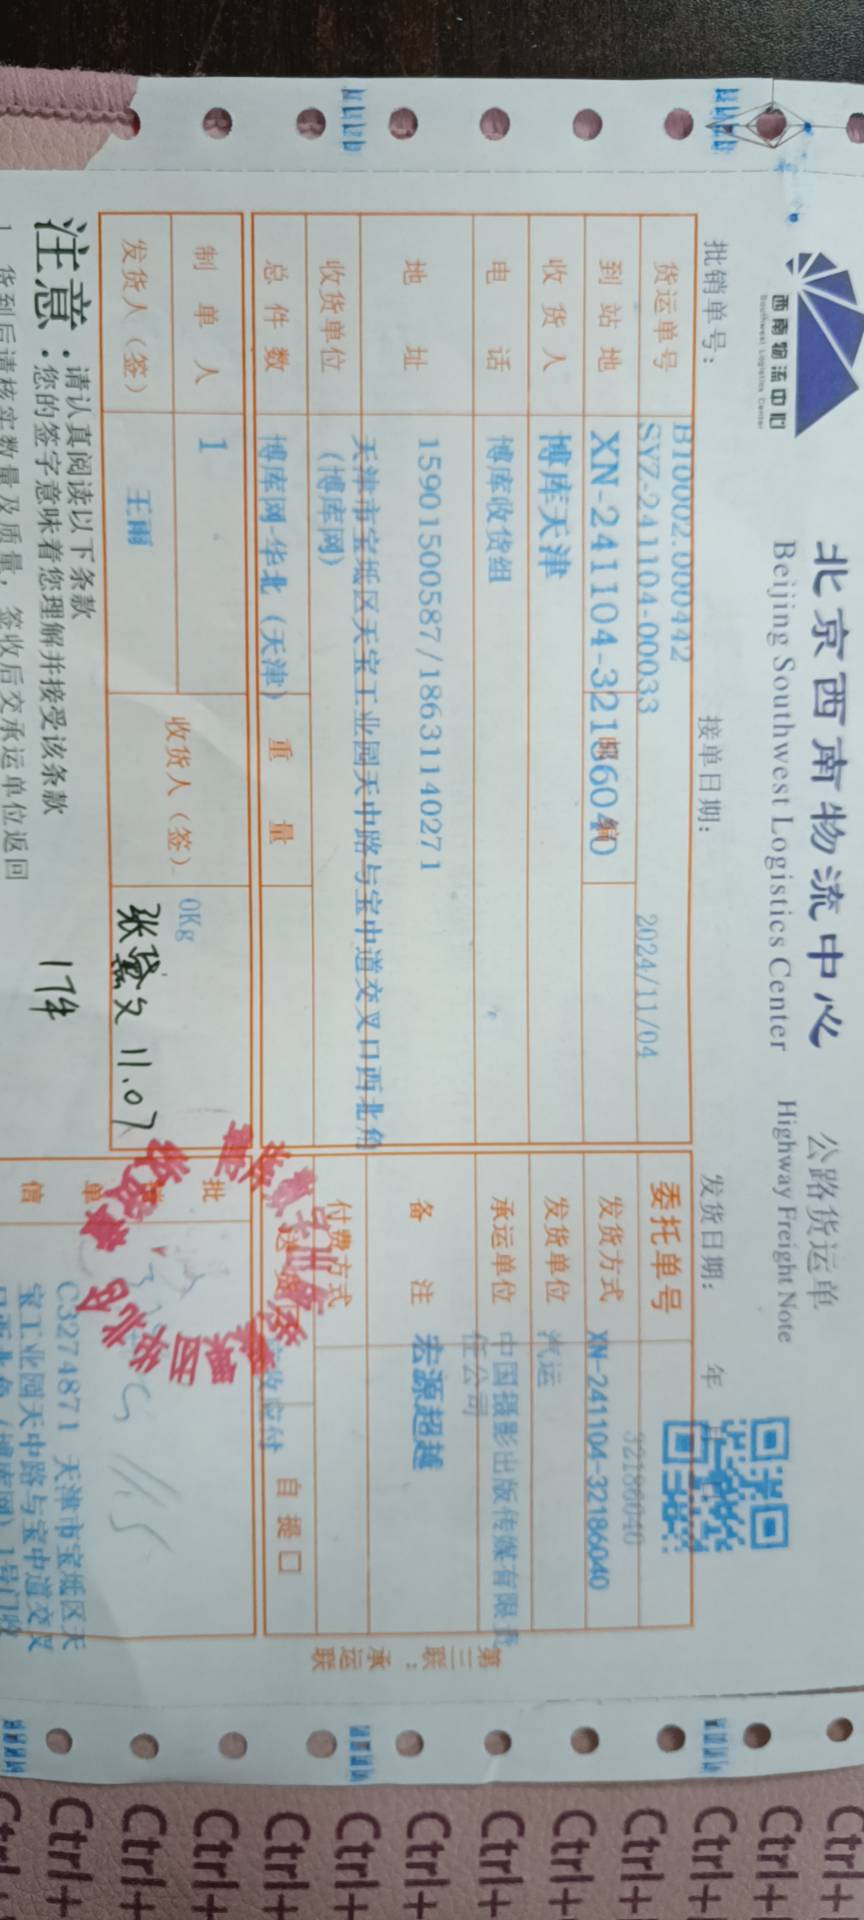 西南物流中心
Southwest Logistics Center
北京西南物流中心
Beijing Southwest Logistics Center
公路货运单
Highway Freight Note
批销单号：
接单日期：
发货日期： 年 月
B10002.000442
货运单号 SYZ-241104-00033 2024/11/04
到站地 XN-241104-32186040
收货人 博库天津
电话 博库收货组
地址 15901500587/18631140271
天津市宝坻区天宝工业园天中路与宝中道交叉口西北角
收货单位 (博库网)
总件数 博库网-华北 (天津) 重量
制单人 1 收货人（签） 0Kg
发货人（签） 王雨 张黛文 11.07
委托单号 32186040
发货方式 XN-241104-32186040
发货单位 汽运
承运单位 中国摄影出版传媒有限责
任公司
备注 宏源超越
付费方式
自提口
批
单
信
C3274871 天津市宝坻区天
宝工业园天中路与宝中道交叉
口西北角 (博库网) 1号门收
第三联：承运联
注意：请认真阅读以下条款
您的签字意味着您理解并接受该条款
17件
1、货到后请核实数量及质量，签收后交承运单位返回
Ctrl+
Ctrl+
Ctrl+
Ctrl+
Ctrl+
Ctrl+
Ctrl+
Ctrl+
Ctrl+
Ctrl+